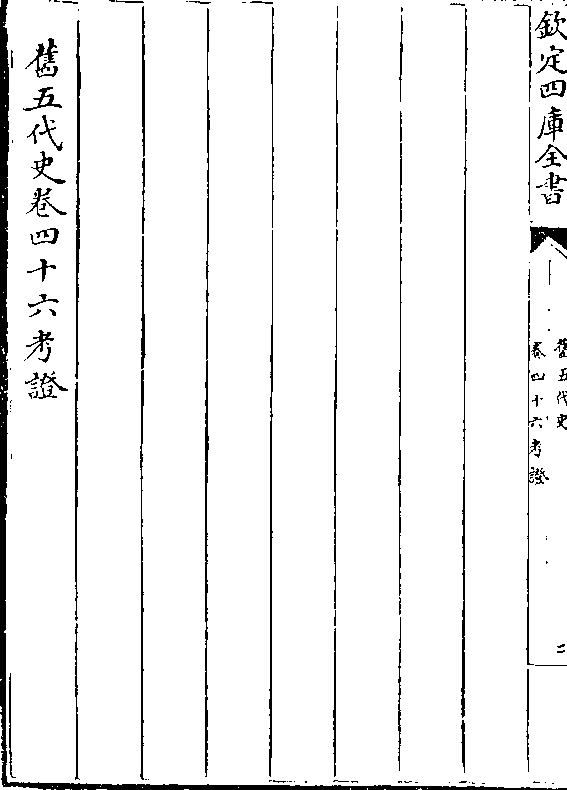 欽定四庫全書
舊五代史
卷四十六考證
二
舊五代史卷四十六考證